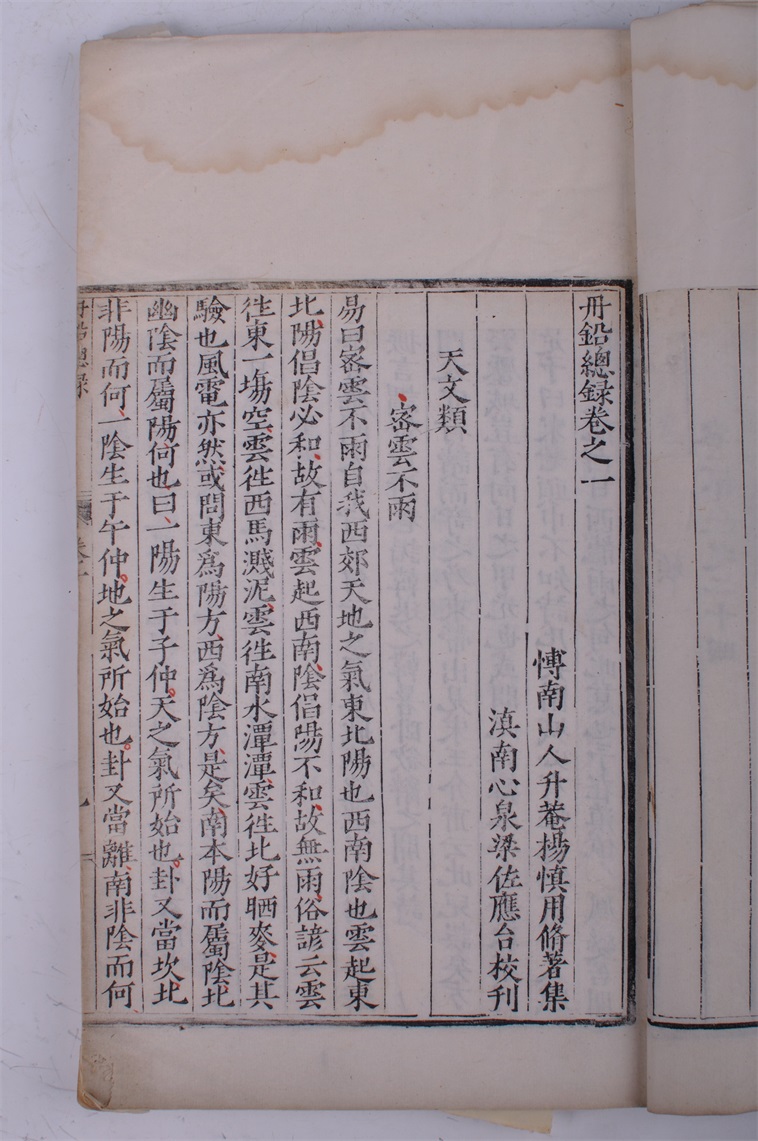 丹鉛總録卷之一
博南山人升菴楊慎用脩著集
滇南心泉梁佐應台校刊
天文類
密雲不雨
易曰密雲不雨自我西郊天地之氣東北陽也西南陰也雲起東
北陽倡陰必和故有雨雲起西南陰倡陽不和故無雨俗諺云雲
徃東一塲空雲徃西馬濺泥雲徃南水潭潭雲徃北好晒麥是其
驗也風電亦然或問東爲陽方西爲陰方是矣南本陽而屬陰北
幽陰而屬陽何也曰一陽生于子仲天之氣所始也卦又當坎北
非陽而何一陰生于午仲地之氣所始也卦又當離南非陰而何
丹鉛總録